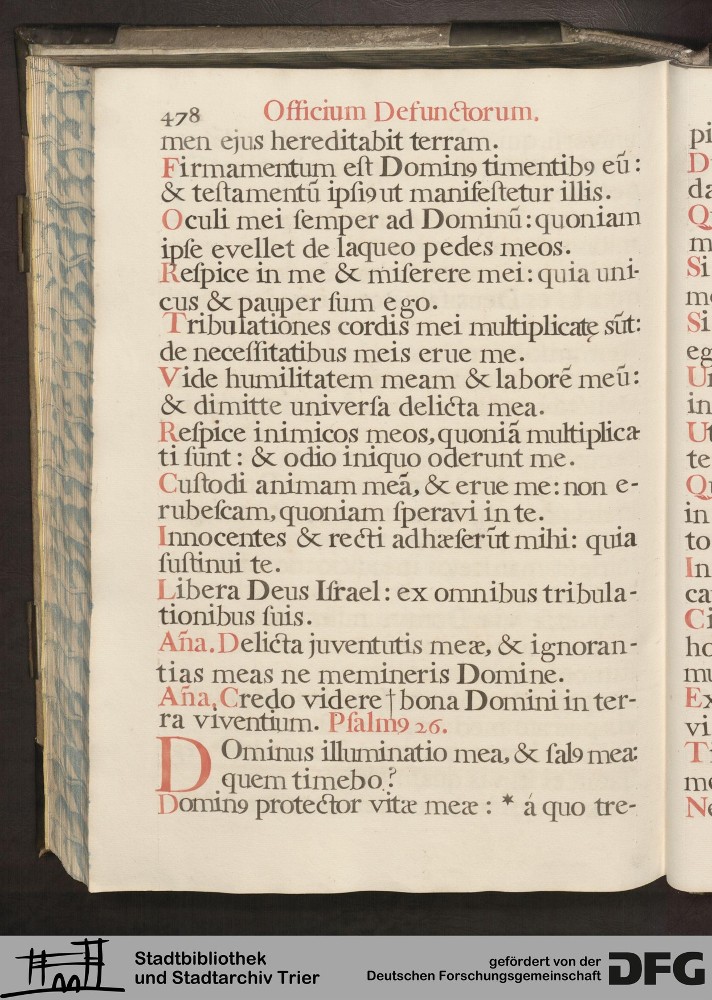 478 Officium Defunctorum.
men ejus hereditabit terram.
Firmamentum eſt Dominꝯ timentibꝯ eū:
& teſtamentū ipſiꝯ ut manifeſtetur illis.
Oculi mei ſemper ad Dominū: quoniam
ipſe evellet de laqueo pedes meos.
Reſpice in me & miſerere mei: quia uni-
cus & pauper ſum ego.
Tribulationes cordis mei multiplicatę sūt:
de neceſſitatibus meis erue me.
Vide humilitatem meam & laborẽ meū:
& dimitte univerſa delicta mea.
Reſpice inimicos meos, quoniã multiplica-
ti ſunt: & odio iniquo oderunt me.
Cuſtodi animam meã, & erue me: non e-
rubeſcam, quoniam ſperavi in te.
Innocentes & recti adhæſerūt mihi: quia
ſuſtinui te.
Libera Deus Iſrael: ex omnibus tribula-
tionibus ſuis.
Aña. Delicta juventutis meæ, & ignoran-
tias meas ne memineris Domine.
Aña. Credo videre † bona Domini in ter-
ra viventium. Pſalmꝯ 26.
Dominus illuminatio mea, & ſalꝯ mea:
quem timebo?
Dominꝯ protector vitæ meæ: * á quo tre-
pi
da
Q
m
Si
me
Si
eg
in
Ut
te
in
to
In
ca
Ci
ho
mu
Ex
vi
T
me
Ne
Stadtbibliothek
und Stadtarchiv Trier
gefördert von der
Deutschen Forschungsgemeinschaft
DFG